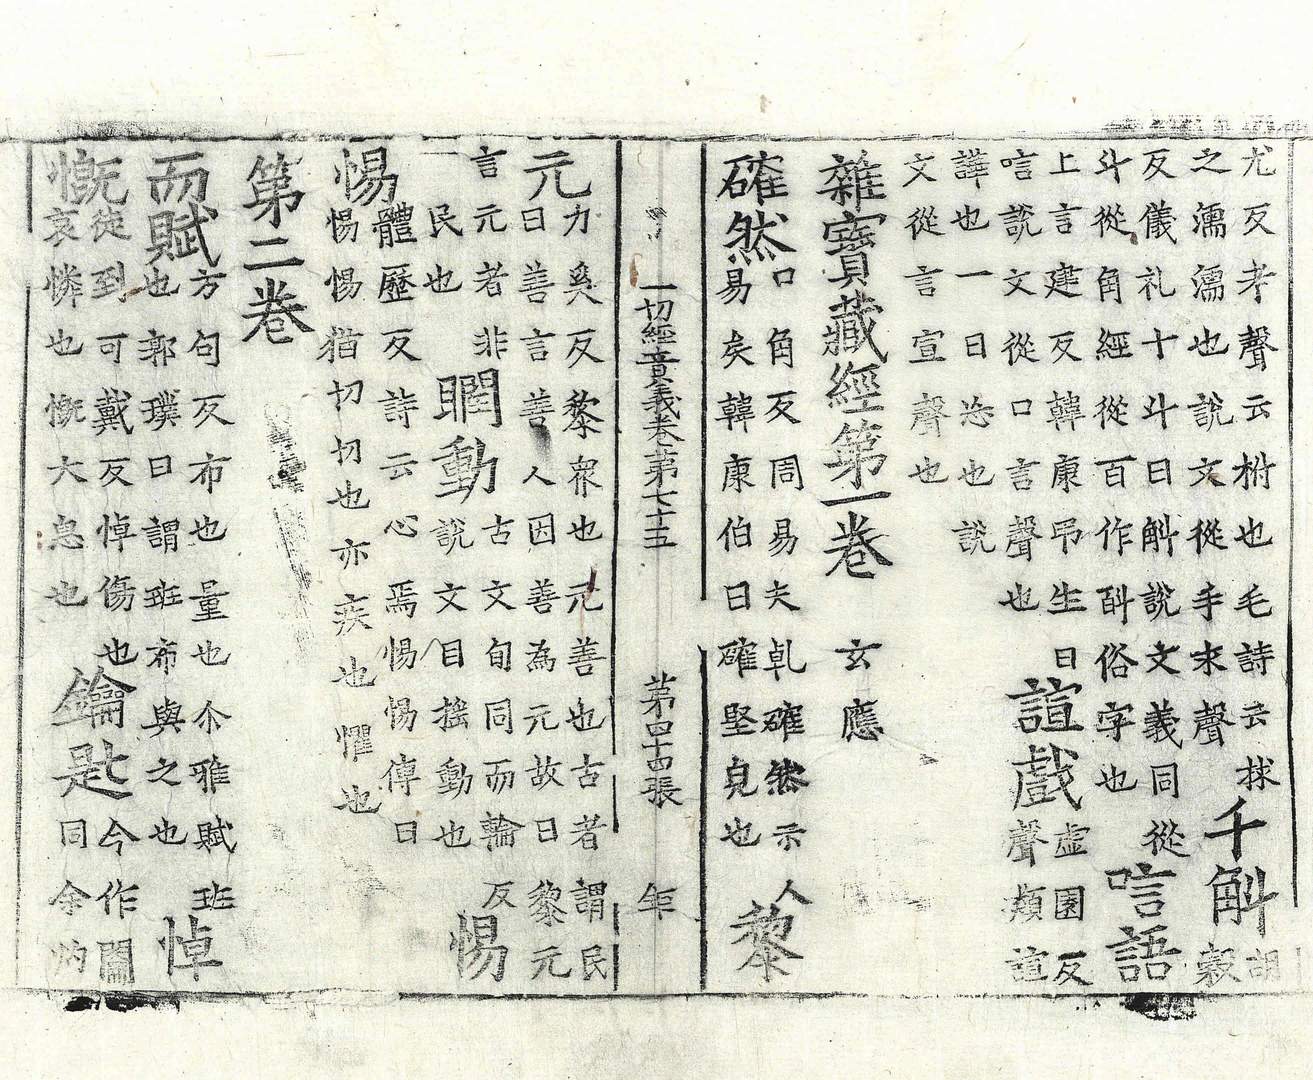 尤反考聲云枹也毛詩云捄
之濡濡也說文從手求聲
千斛
胡
穀
反儀礼十斗曰斛說文義同從
斗從角經從百作㪷俗字也
唁語
上言建反韓康吊生曰
唁說文從口言聲也
諠戲
虛園反
聲類諠
譁也一曰恣也說
文從言宣聲也
雜寶藏經第一卷 玄應
確然
口角反周易夫乹確然示人
易矣韓康伯曰確堅皃也
黎
一切經音義卷第七十五 第四十四張 年
元
力奚反黎衆也元善也古者謂民
曰善言善人因善為元故曰黎元
言元者非
民也
瞤動
古文旬同而輪反
說文目搖動也
惕
惕
體歷反詩云心焉惕惕傳曰
惕惕猶切切也亦疾也懼也
第二卷
而賦
方句反布也量也尒雅賦班
也郭璞曰謂班布與之也
悼
慨
徒到可戴反悼傷也
哀憐也慨大息也
鑰匙
今作闟
同余灼